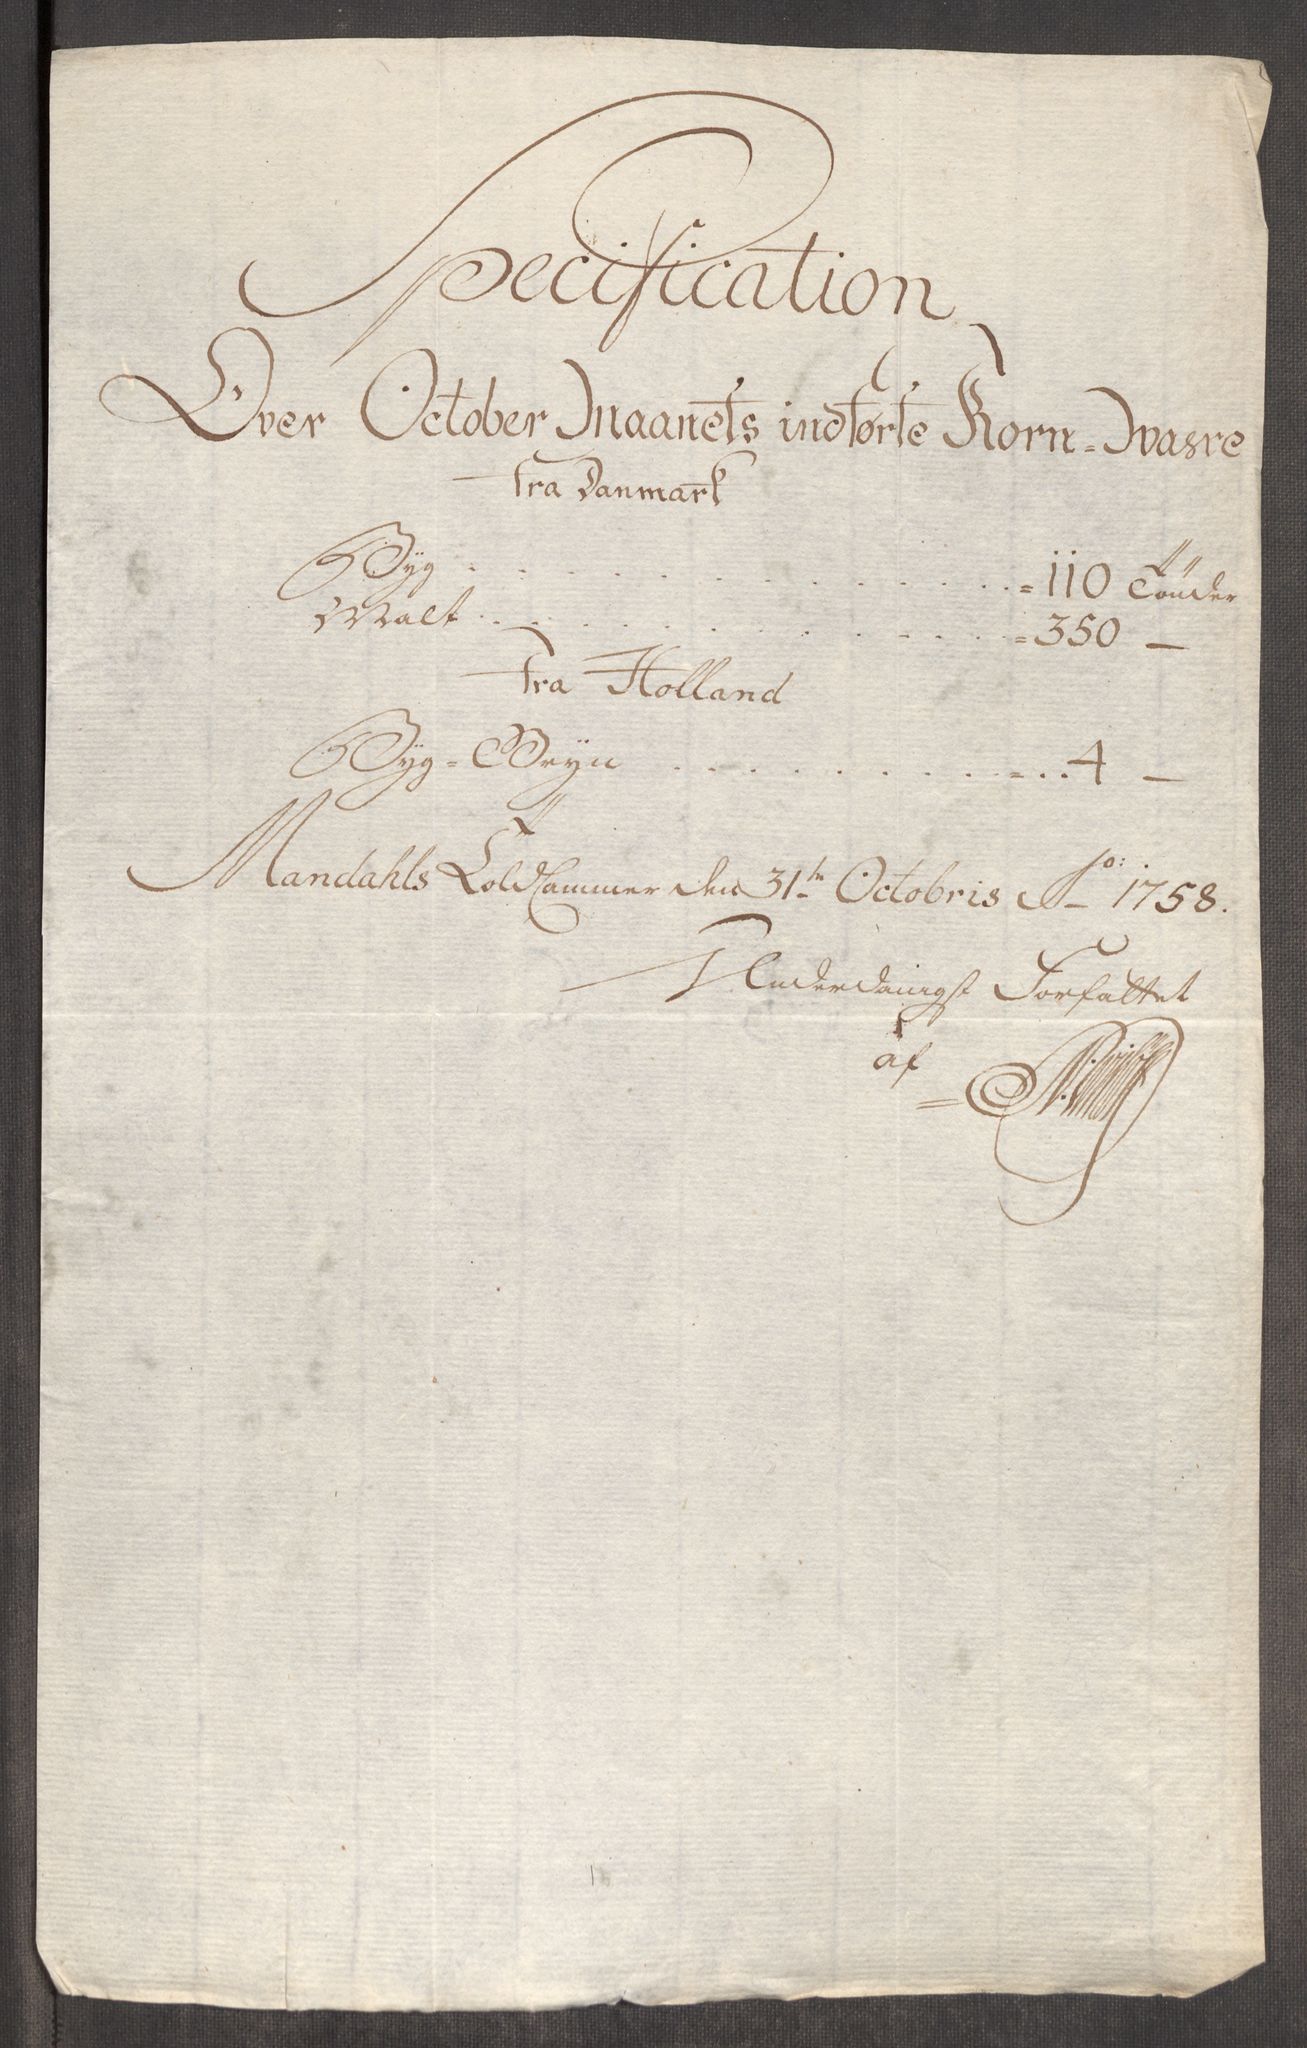 Specification
Over October Maanets indførte Korn=Wahre
fra Danmark
Byg . . . . . . . . . . . . = 110 Tönder
Malt . . . . . . . . . . . = 350 —
fra Holland
Byg=Gryn . . . . . . . . =..4 —
Mandahls Told Cammer den 31te Octobris Ao: 1758.
Underdanigst Forfattet
af